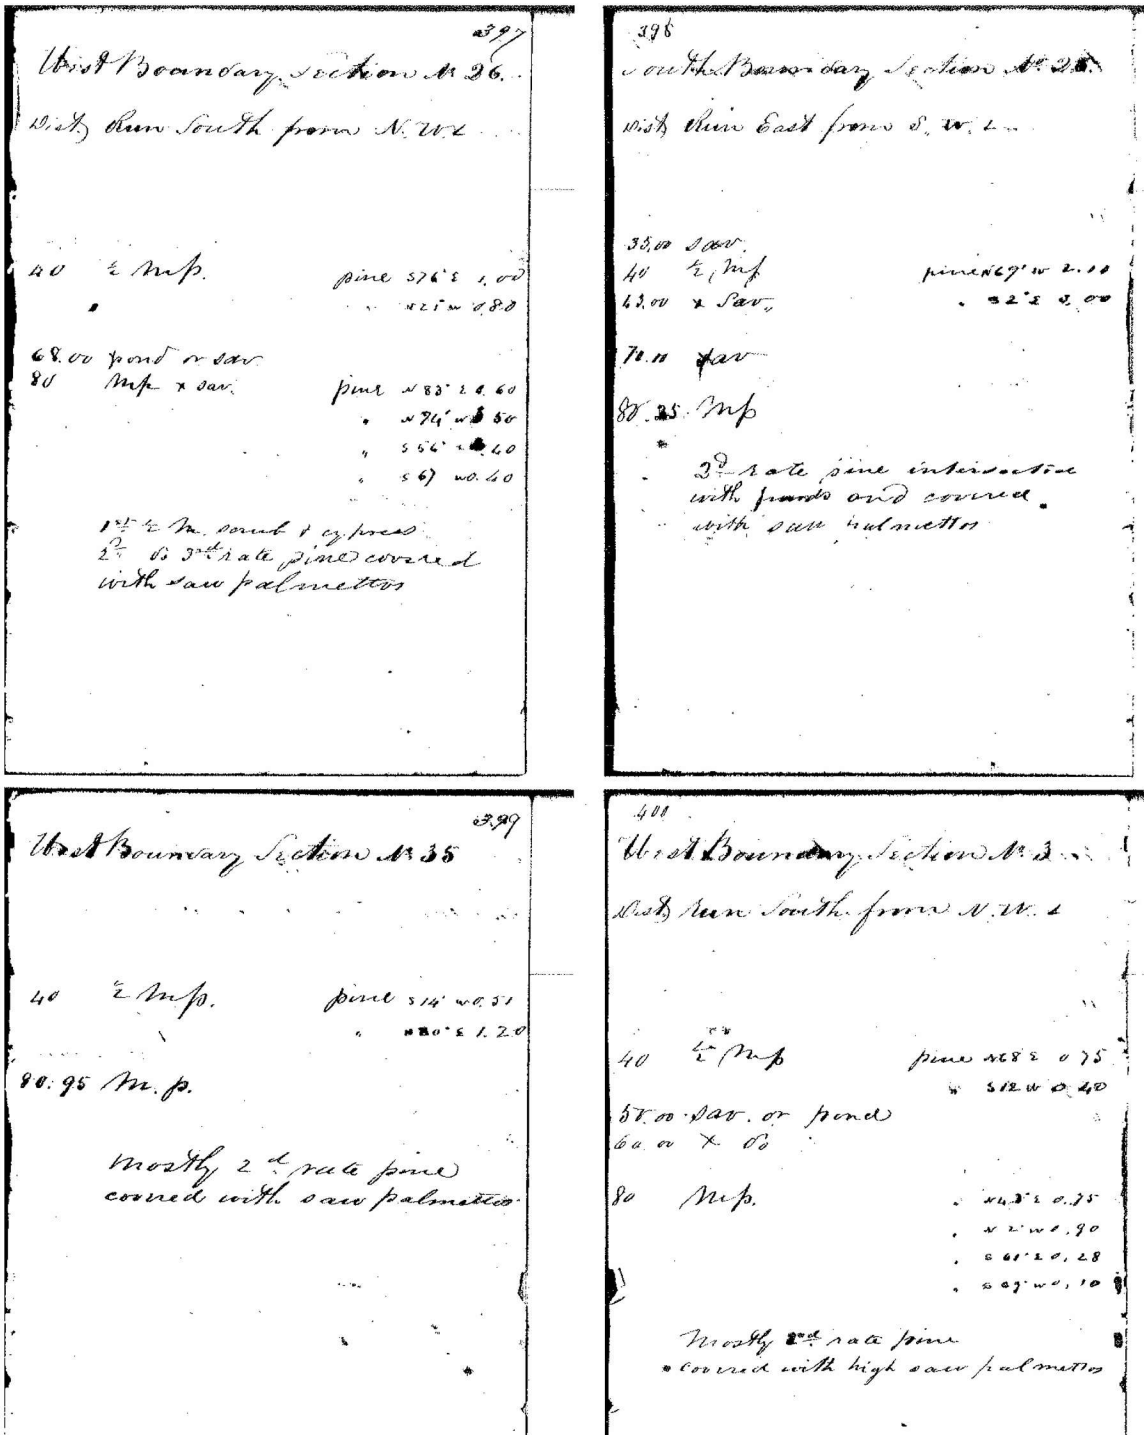 397
West Boundary Section No 26.
Dist, Run South from N.W.
40 ½ Mp. pine S76°E 1,00
" N21°W 0,80
68.00 pond or sav
80 Mp x sav. pine N83°E 0.60
" N74°W 50
" S56°E 40
" S67 W0.40
1st ½ M. scrub & cypress
2d do 3rd rate pine covered
with saw palmettos
398
South Boundary Section No
Dist, Run East from S. W.
35,00 sav.
40 ½ Mp pine N69°W 2.10
63.00 x Sav,, " S2°E 3,00
70.00 sav
80.25 Mp
3d rate pine
with ponds and covered
with saw palmettos
399
West Boundary Section No 35
40 ½ Mp. pine S14°W0.51
" N80°E 1.20
80.95 M. p.
Mostly 2d rate pine
covered with saw palmettos
400
West Boundary Section No 3
Dist, Run South from N. W.
40 ½ Mp pine N68 E 0 75
" S12 W 0 40
50.00 sav. or pond
60.00 x do
80 Mp. " E 0.75
" N2°W0,90
" S61°E0,28
" W0,10
Mostly 2nd rate pine
covered with high saw palmettos